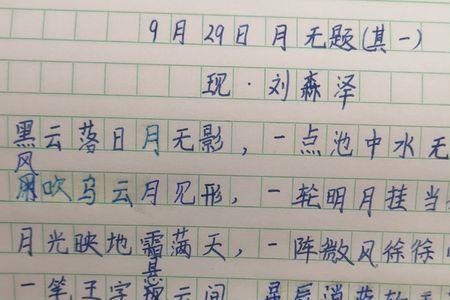 9月29日 月 无题(其一)
现·刘森泽
黑云落日月无影，一点池中水无
风吹乌云月见形，一轮明月挂当
月光映地霜满天，一阵微风徐徐
一笔王字悬云间